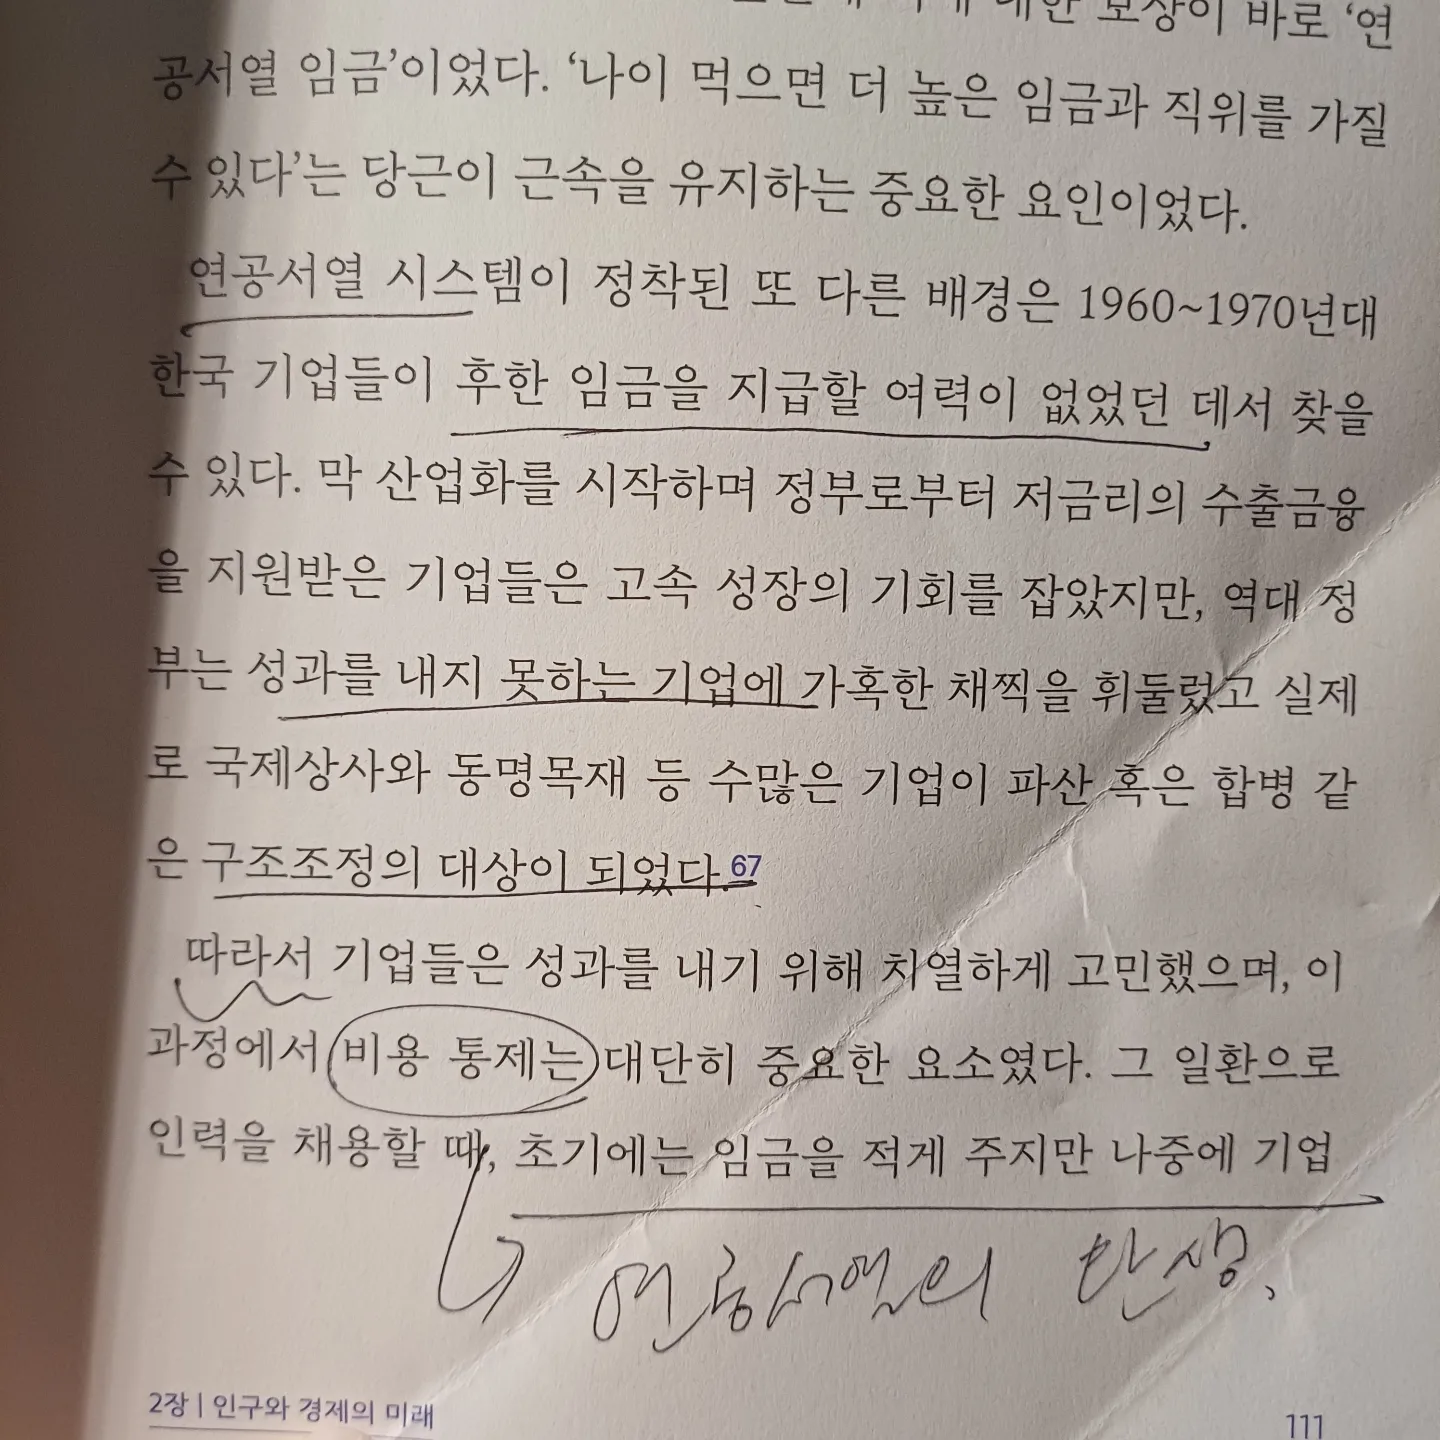 대한 보상이 바로 ‘연
공서열 임금’이었다. ‘나이 먹으면 더 높은 임금과 직위를 가질
수 있다’는 당근이 근속을 유지하는 중요한 요인이었다.
연공서열 시스템이 정착된 또 다른 배경은 1960~1970년대
한국 기업들이 후한 임금을 지급할 여력이 없었던 데서 찾을
수 있다. 막 산업화를 시작하며 정부로부터 저금리의 수출금융
을 지원받은 기업들은 고속 성장의 기회를 잡았지만, 역대 정
부는 성과를 내지 못하는 기업에 가혹한 채찍을 휘둘렀고 실제
로 국제상사와 동명목재 등 수많은 기업이 파산 혹은 합병 같
은 구조조정의 대상이 되었다.67
따라서 기업들은 성과를 내기 위해 치열하게 고민했으며, 이
과정에서 비용 통제는 대단히 중요한 요소였다. 그 일환으로
인력을 채용할 때, 초기에는 임금을 적게 주지만 나중에 기업
연공서열의 탄생.
2장 | 인구와 경제의 미래
111